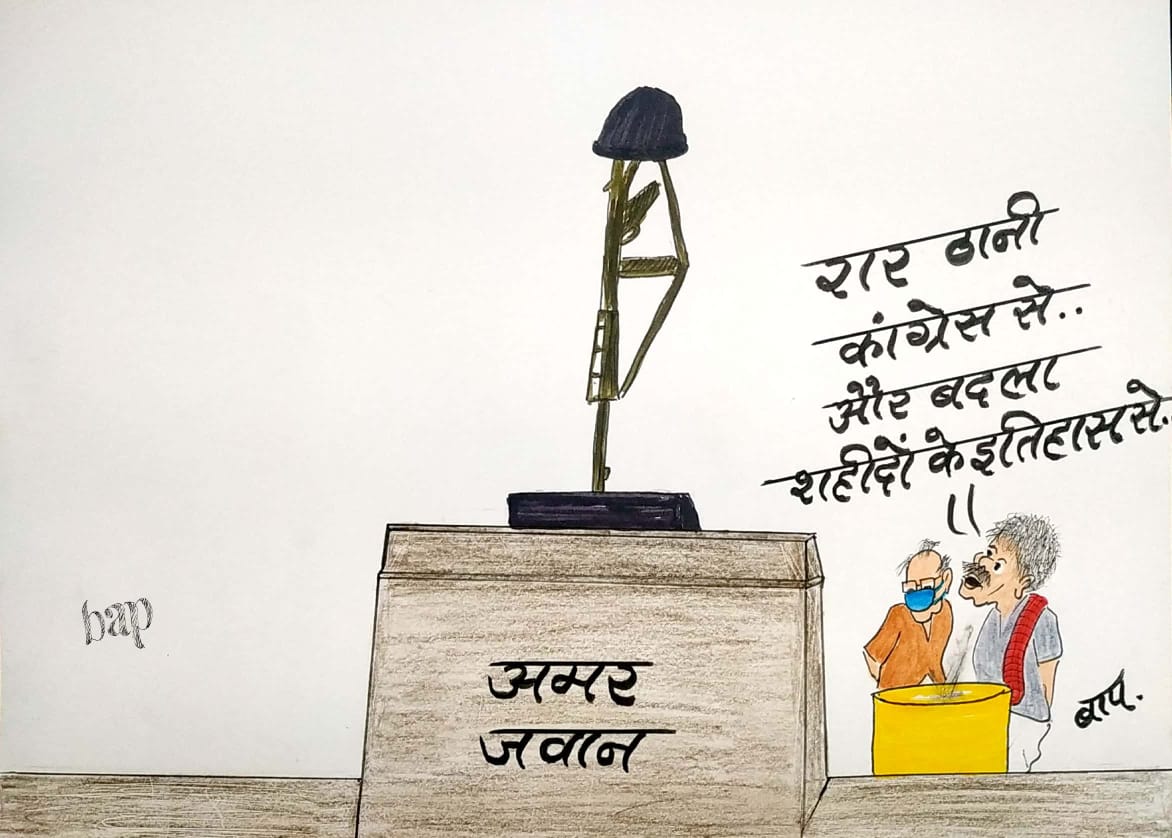 रार ठानी
कांग्रेस से..
और बदला
शहीदों के इतिहास से..
अमर
जवान
bap
बाप.